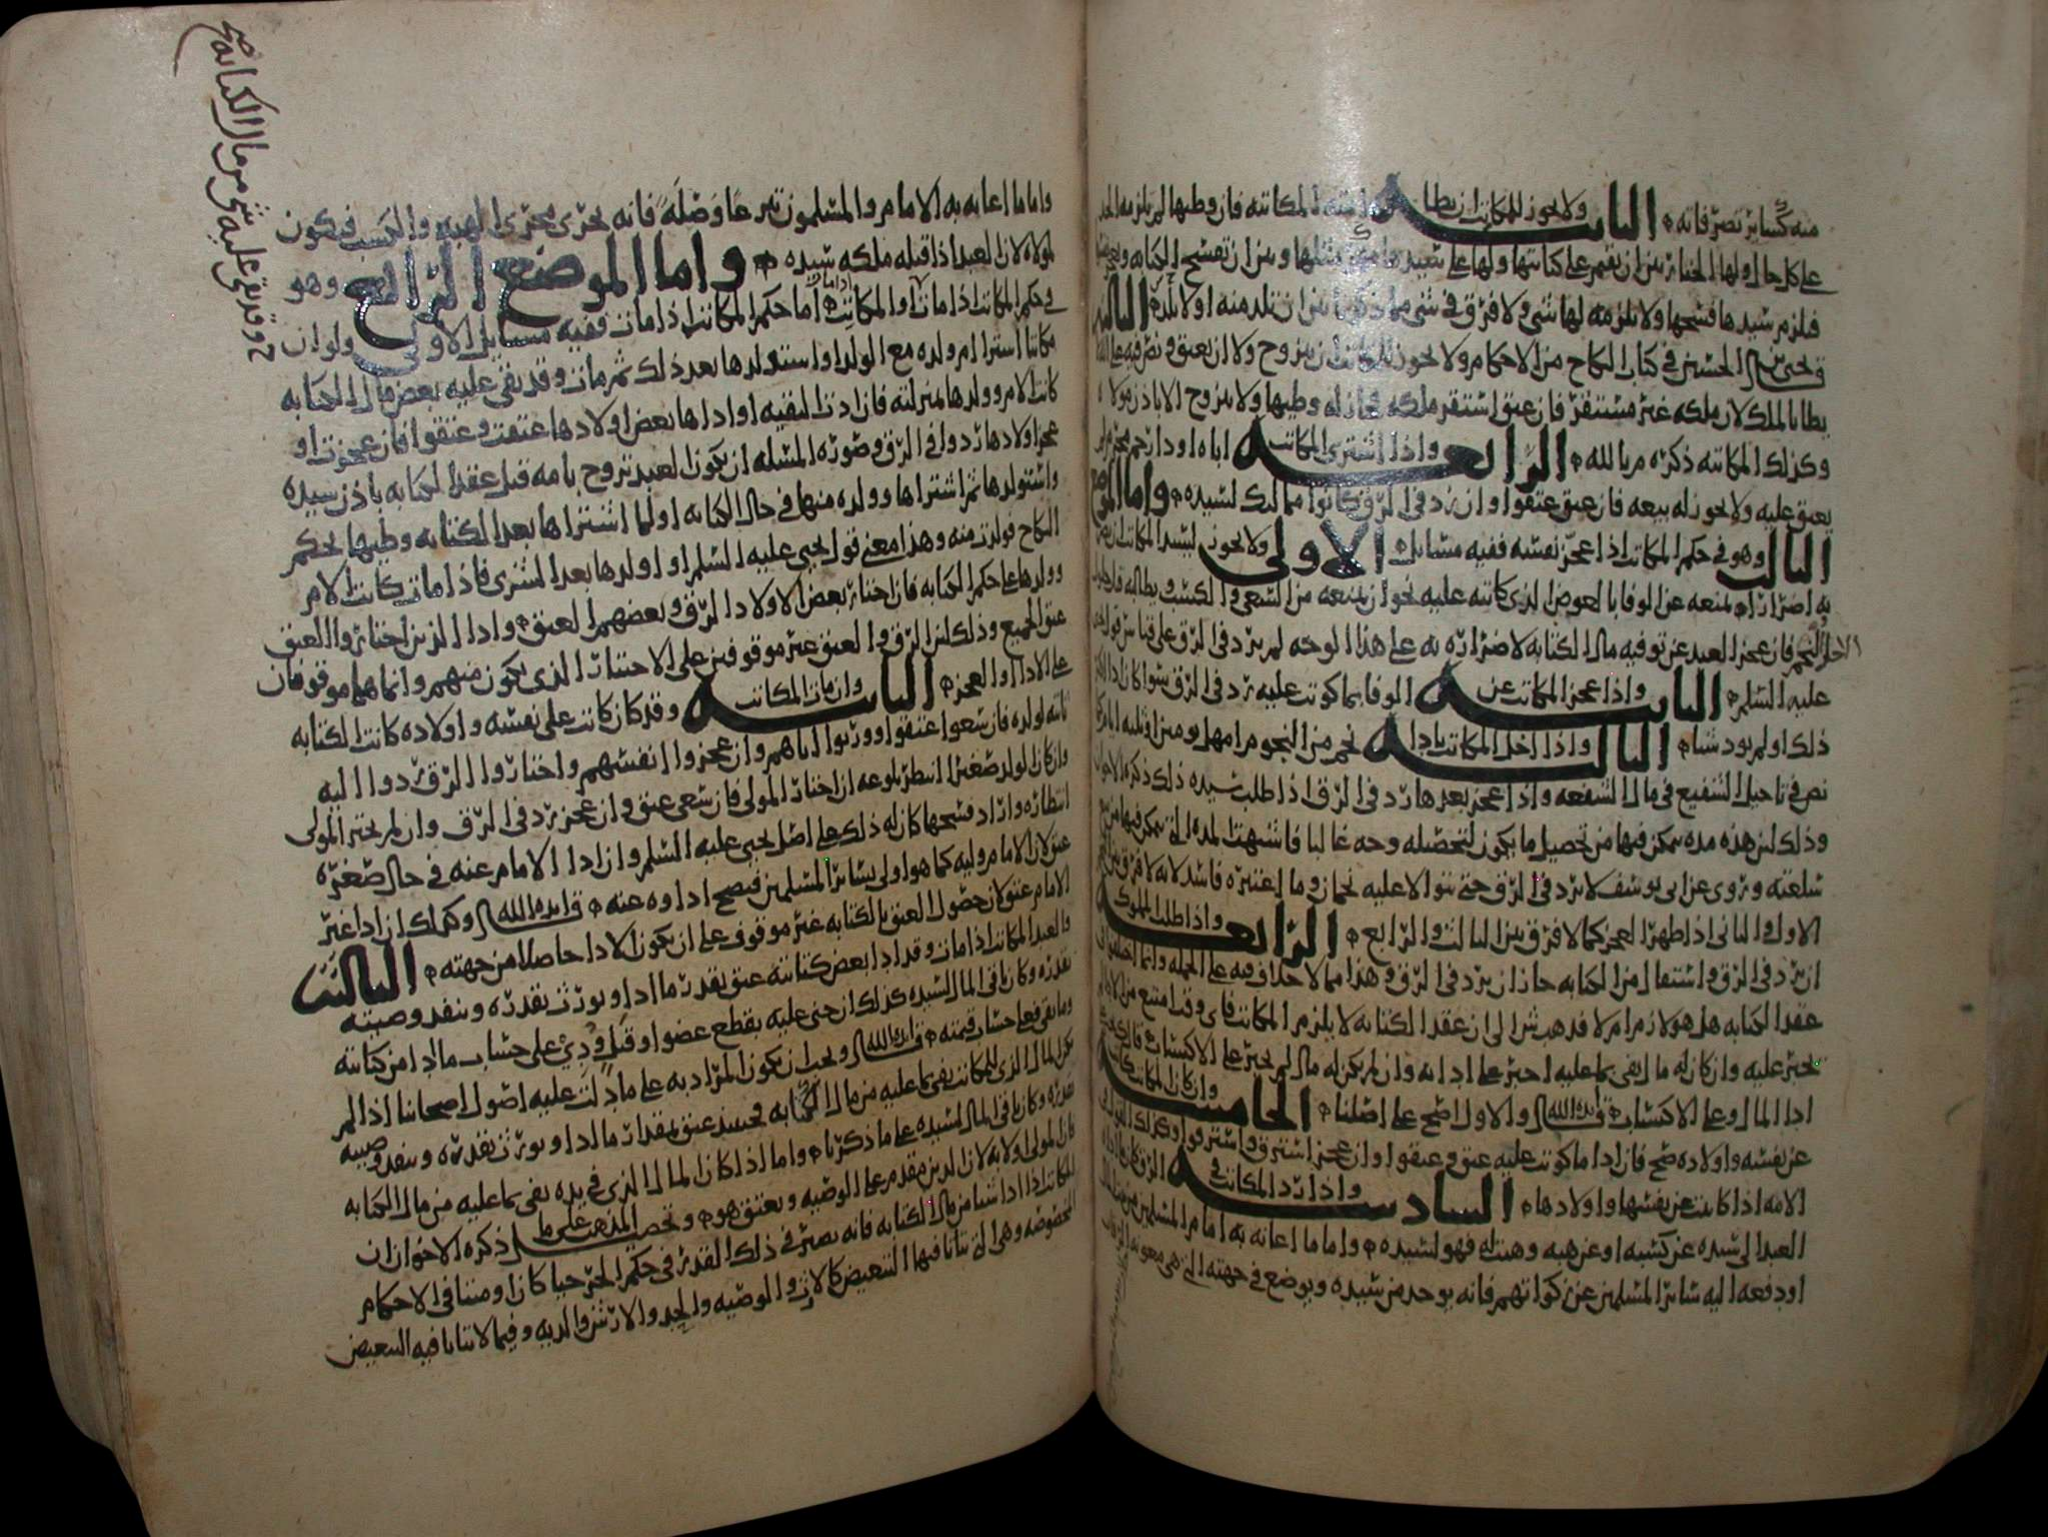 منه كسائر تصرفاته الثانية ولا يجوز للمكاتب ان يطا امته المكاتبة فان وطيها لم يلزمه الحد
على كل حال ولها الخيار بين ان تقيم على كتابتها ولها على سيدها مهر مثلها وبين ان تفسخ الكتابة
فلزم سيدها فسخها ولا يلزمه لها شي ولا فرق في شي مما ذكرنا بين ان تلد منه او لا تلد الثالثة
في كتاب النكاح من الاحكام ولا يجوز للمكاتب ان يتزوج ولا ان يعتق
يطا بالملك لان ملكه غير مستقر فان عتق استقر ملكه فجاز له وطيها ولا يتزوج الا باذن مولاه
وكذلك المكاتبة ذكره م بالله الرابعة واذا اشترى المكاتب اباه او ذا رحم محرم
يعتق عليه ولا يجوز له بيعه فان عتق عتقوا وان رد في الرق كانوا مماليك لسيده واما الموضع
الثالث وهو في حكم المكاتب اذا عجز نفسه ففيه مسايل الاولى ولا يجوز لسيد المكاتب ان
به اضرارا يمنعه عن الوفا بالعوض الذي كاتبه عليه نحو ان يمنعه من السعي والكسب ويطالبه قبل
فان عجز العبد عن توفيه مال الكتابة لاضراره به على هذا الوجه لم يرد في الرق على قياس قول
عليه السلم الثانية واذا عجز المكاتب عن الوفا بما كوتب عليه رد في الرق سوا كان ادا
ذلك او لم يود شيا الثالثة واذا اخل المكاتب بادا نجم من النجوم امهل يومين او ثلثة
نص في تاجيل الشفيع في مال الشفعة واذا عجز بعدها رد في الرق اذا طلب سيده ذلك ذكره الاخوان
وذلك لان هذه مدة يمكن فيها من تحصيل ما يكون لتحصيله وجه غالبا فاشبهت المدة التي يمكن فيها من
سلعته وروي عن ابي يوسف لا يرد في الرق حتى يتوالا عليه نجمان وما اعتبره فاسد لانه لا فرق بين
الاول والثاني اذا ظهر العجز كما لا فرق بين الثالث والرابع الرابعة واذا طلب المملوك
ان يرد في الرق واستقال من الكتابة جاز ان يرد في الرق وهذا مما لا خلاف فيه على الجملة وانما
عقد الكتابة هل هو لازم ام لا فذهب ش الى ان عقد الكتابة لا يلزم المكاتب فاي وقت امتنع من الادا لم
يجبر عليه وان كان له مال يفي بما عليه اجبر على ادائه وان لم يكن له مال لم يجبر على الاكتساب
ادا المال وعلى الاكتساب والاول اصح على اصلنا الخامسة وان كان المكاتب كاتب
عن نفسه واولاده صح فان ادا ما كوتب عليه عتق وعتقوا وان عجز استرق واسترقوا وكذلك القول في
الامة اذا كاتبت عن نفسها واولادها السادسة واذا رد المكاتب في الرق
العبد الى سيده عن كسبه او عن هبة وهبت له فهو لسيده واما ما اعانه به امام المسلمين من
او دفعه اليه سائر المسلمين عن زكواتهم فانه يوخذ من سيده ويوضع في جهته التي هي معونة الرقاب
واما ما اعانه به الامام والمسلمون تبرعا وصلة فانه يجري مجرى الهبة والكسب فيكون
لمولاه لان العبد اذا قبله ملكه سيده واما الموضع الرابع وهو
في حكم المكاتب اذا مات او المكاتب اما حكم المكاتب اذا مات ففيه مسايل الاولى ولو ان
مكاتبا اشترا ام ولده مع الولد او استولدها بعد ذلك ثم مات وقد بقي عليه بعض مال الكتابة
كانت الام وولدها بمنزلته فان ادت البقية او اداها بعض اولادها عتقت وعتقوا فان عجزت او
عجز اولادها ردوا في الرق وصورة المسئلة ان يكون العبد تزوج بامة قبل عقد الكتابة باذن سيده
واستولدها ثم اشتراها وولده منها في حال الكتابة او لما اشتراها بعد الكتابة وطيها بحكم
النكاح فولدت منه وهذا معنى قول يحيى عليه السلم او اولدها بعد الشرى فاذا مات كانت الام
وولدها على حكم الكتابة فان اختار بعض الاولاد الرق وبعضهم العتق وادا الذين اختاروا العتق
عتق الجميع وذلك لان الرق والعتق غير موقوفين على الاختيار الذي يكون منهم وانما هما موقوفان
على الادا او العجز الثانية وان مات المكاتب وقد كان كاتب على نفسه واولاده كانت الكتابة
ثابتة لولده فان سعوا عتقوا وورثوا اباهم وان عجزوا انفسهم واختاروا الرق ردوا اليه
وان كان الولد صغيرا انتظر بلوغه ان اختار المولى فان سعى عتق وان عجز رد في الرق وان لم يختر المولى
انتظاره واراد فسخها كان له ذلك على اصل يحيى عليه السلم وان ادا الامام عنه في حال صغره
عتق لان الامام وليه كما هو ولي سائر المسلمين فيصح اداوه عنه وكذلك ان ادا غير
الامام عتق لان حصول العتق بالكتابة غير موقوف على ان يكون الادا حاصلا من جهته الثالثة
والعبد المكاتب اذا مات وقد ادا بعض كتابته عتق بقدر ما ادا ويورث بقدره وتنفذ وصيته
بقدره وكان باقي المال لسيده كذلك ان جنى عليه بقطع عضو او قتل ودي على حساب ما ادا من كتابته
وما بقي فعلى حساب قيمته ويجب ان يكون المراد به على ما دلت عليه اصول اصحابنا اذا لم
يكن المال الذي للمكاتب يفي بما عليه من مال الكتابة فحينئذ عتق بمقدار ما ادا ويورث بقدره وتنفذ وصيته
بقدره وكان باقي المال لسيده على ما ذكرنا واما اذا كان المال الذي في يده يفي بما عليه من مال الكتابة
كان المولى اولى به لان الدين مقدم على الوصية ويعتق هو وتحصيل المذهب على ما ذكره الاخوان ان
المكاتب اذا ادا شيا من مال الكتابة فانه يصير في ذلك القدر في حكم الحر حيا كان او ميتا في الاحكام
المخصوصة وهي التي يتاتا فيها التبعيض كالارث والوصية والحد والارش والدية وفيما لا يتاتا فيه التبعيض
وقد بقي عليه شي من مال الكتابة صح